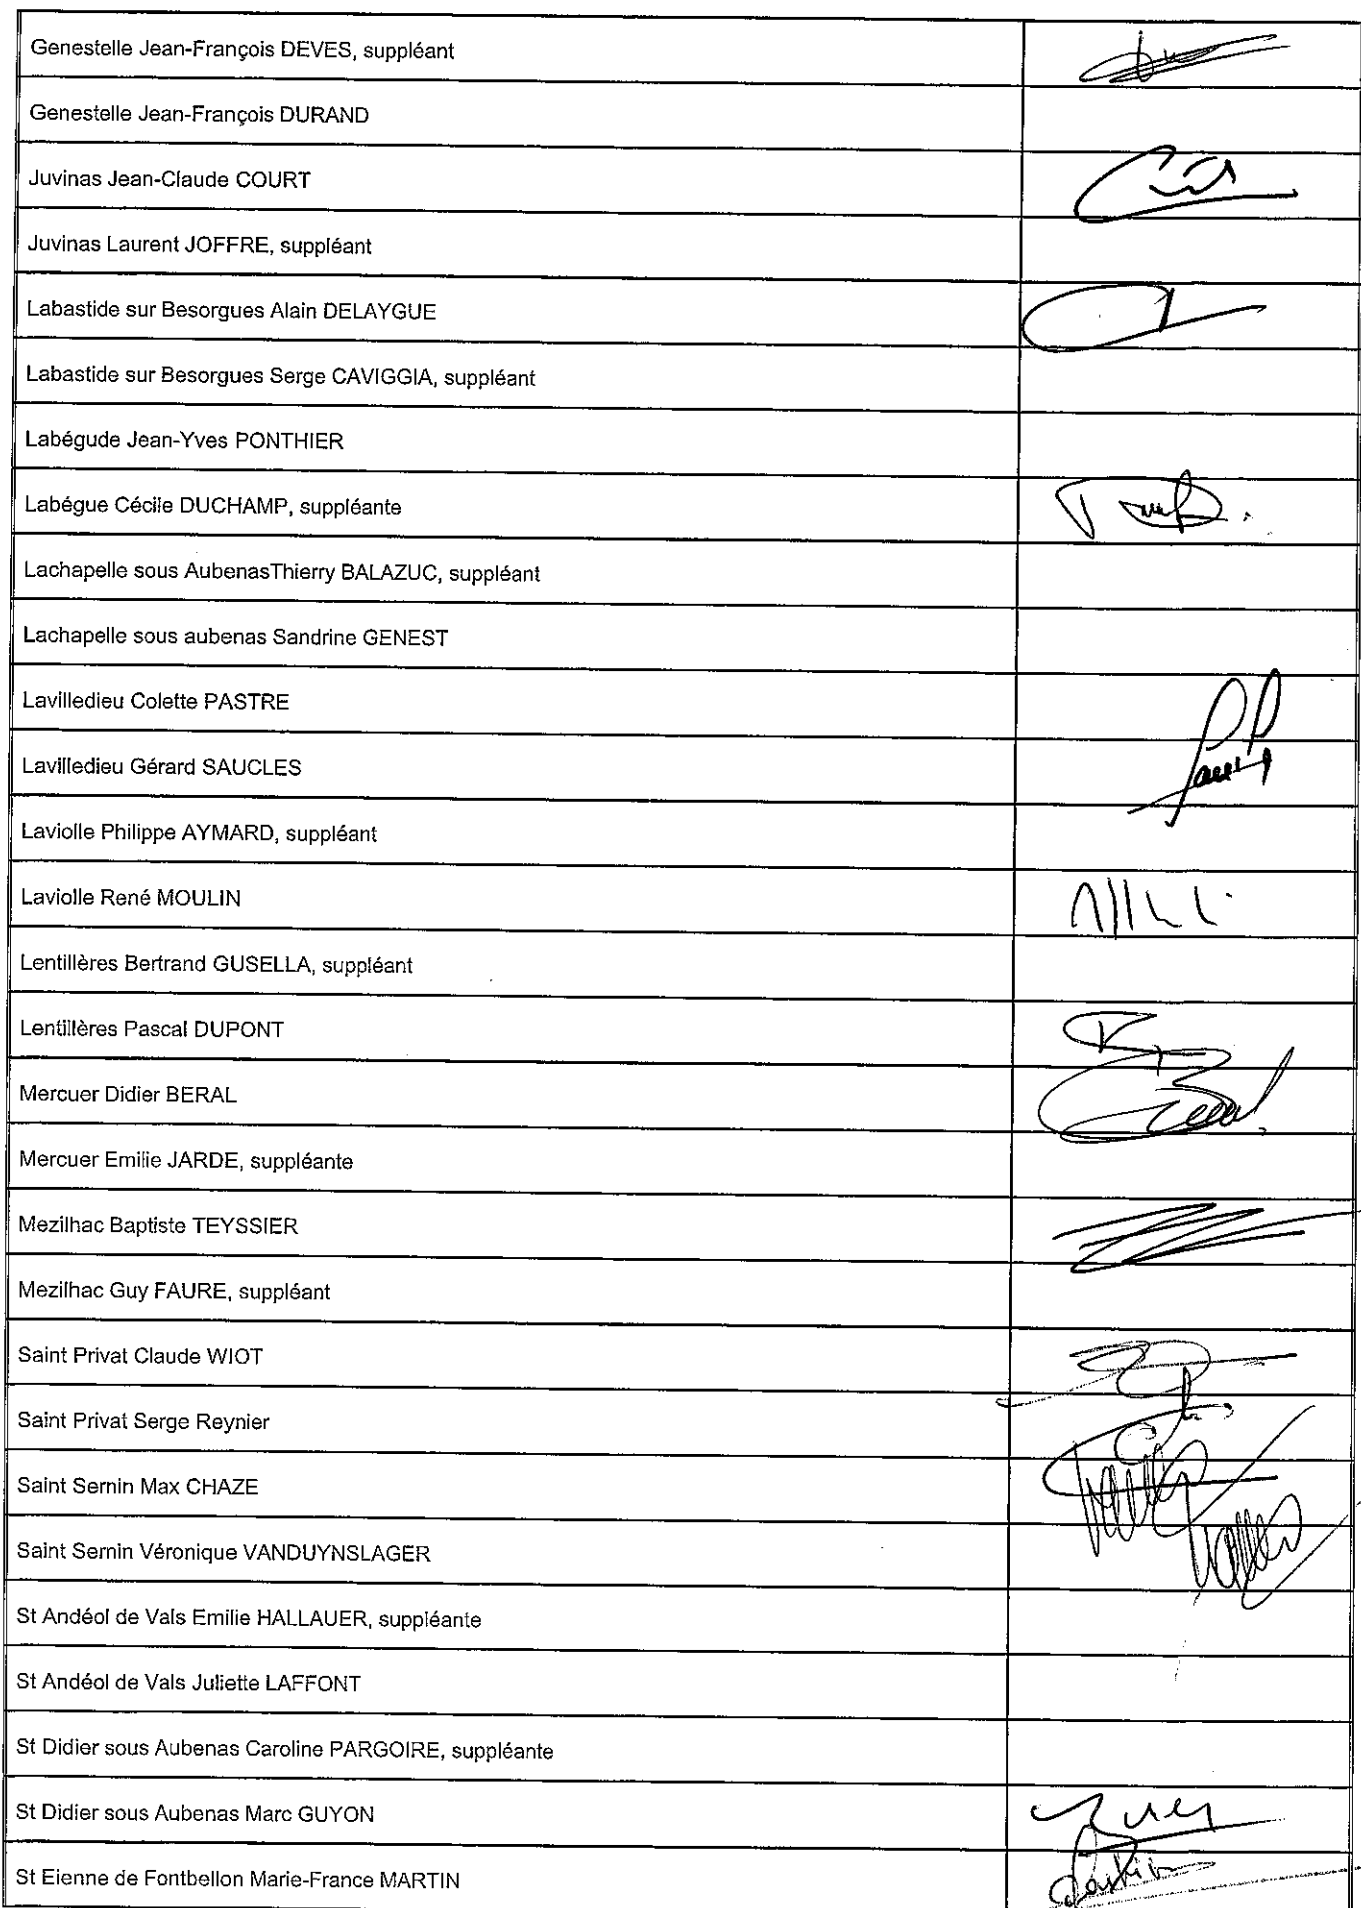 Genestelle Jean-François DEVES, suppléant
Genestelle Jean-François DURAND
Juvinas Jean-Claude COURT
Juvinas Laurent JOFFRE, suppléant
Labastide sur Besorgues Alain DELAYGUE
Labastide sur Besorgues Serge CAVIGGIA, suppléant
Labégude Jean-Yves PONTHIER
Labégue Cécile DUCHAMP, suppléante
Lachapelle sous AubenasThierry BALAZUC, suppléant
Lachapelle sous aubenas Sandrine GENEST
Lavilledieu Colette PASTRE
Lavilledieu Gérard SAUCLES
Laviolle Philippe AYMARD, suppléant
Laviolle René MOULIN
Lentillères Bertrand GUSELLA, suppléant
Lentillères Pascal DUPONT
Mercuer Didier BERAL
Mercuer Emilie JARDE, suppléante
Mezilhac Baptiste TEYSSIER
Mezilhac Guy FAURE, suppléant
Saint Privat Claude WIOT
Saint Privat Serge Reynier
Saint Sernin Max CHAZE
Saint Sernin Véronique VANDUYNSLAGER
St Andéol de Vals Emilie HALLAUER, suppléante
St Andéol de Vals Juliette LAFFONT
St Didier sous Aubenas Caroline PARGOIRE, suppléante
St Didier sous Aubenas Marc GUYON
St Eienne de Fontbellon Marie-France MARTIN